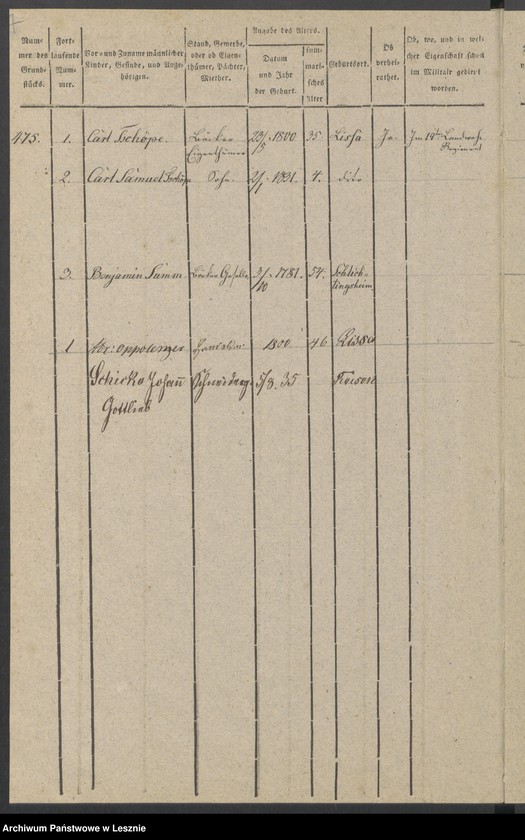 Num-
mer des
Grund-
stücks.
Fort-
laufende
Num-
mer.
Vor- und Zuname männlicher
Kinder, Gesinde, und Ange-
hörigen.
Stand, Gewerbe,
oder ob Eigen-
thümer, Pächter,
Miether.
Angabe des Alters.
Datum
und Jahr
der Geburt.
sum-
mari-
sches
Alter
Geburtsort.
Ob
verhei-
rathet.
Ob, wo, und in wel-
cher Eigenschaft schon
im Militair gedient
worden.
475. 1. Carl Tschöpe. Bäcker 23/5. 1800 35. Lissa Ja. Im 19ten Landwehr
Eigenthümer Regiment
2. Carl Samuel Tschöpe Sohn. 2/1. 1831. 4. dito
3. Benjamin Summ Bäcker Geselle 3/10. 1781. 54. Schlich-
tingsheim
1 1800 46 Reisen
Schicke Johann 5/9. 35
Gottlieb
Archiwum Państwowe w Lesznie